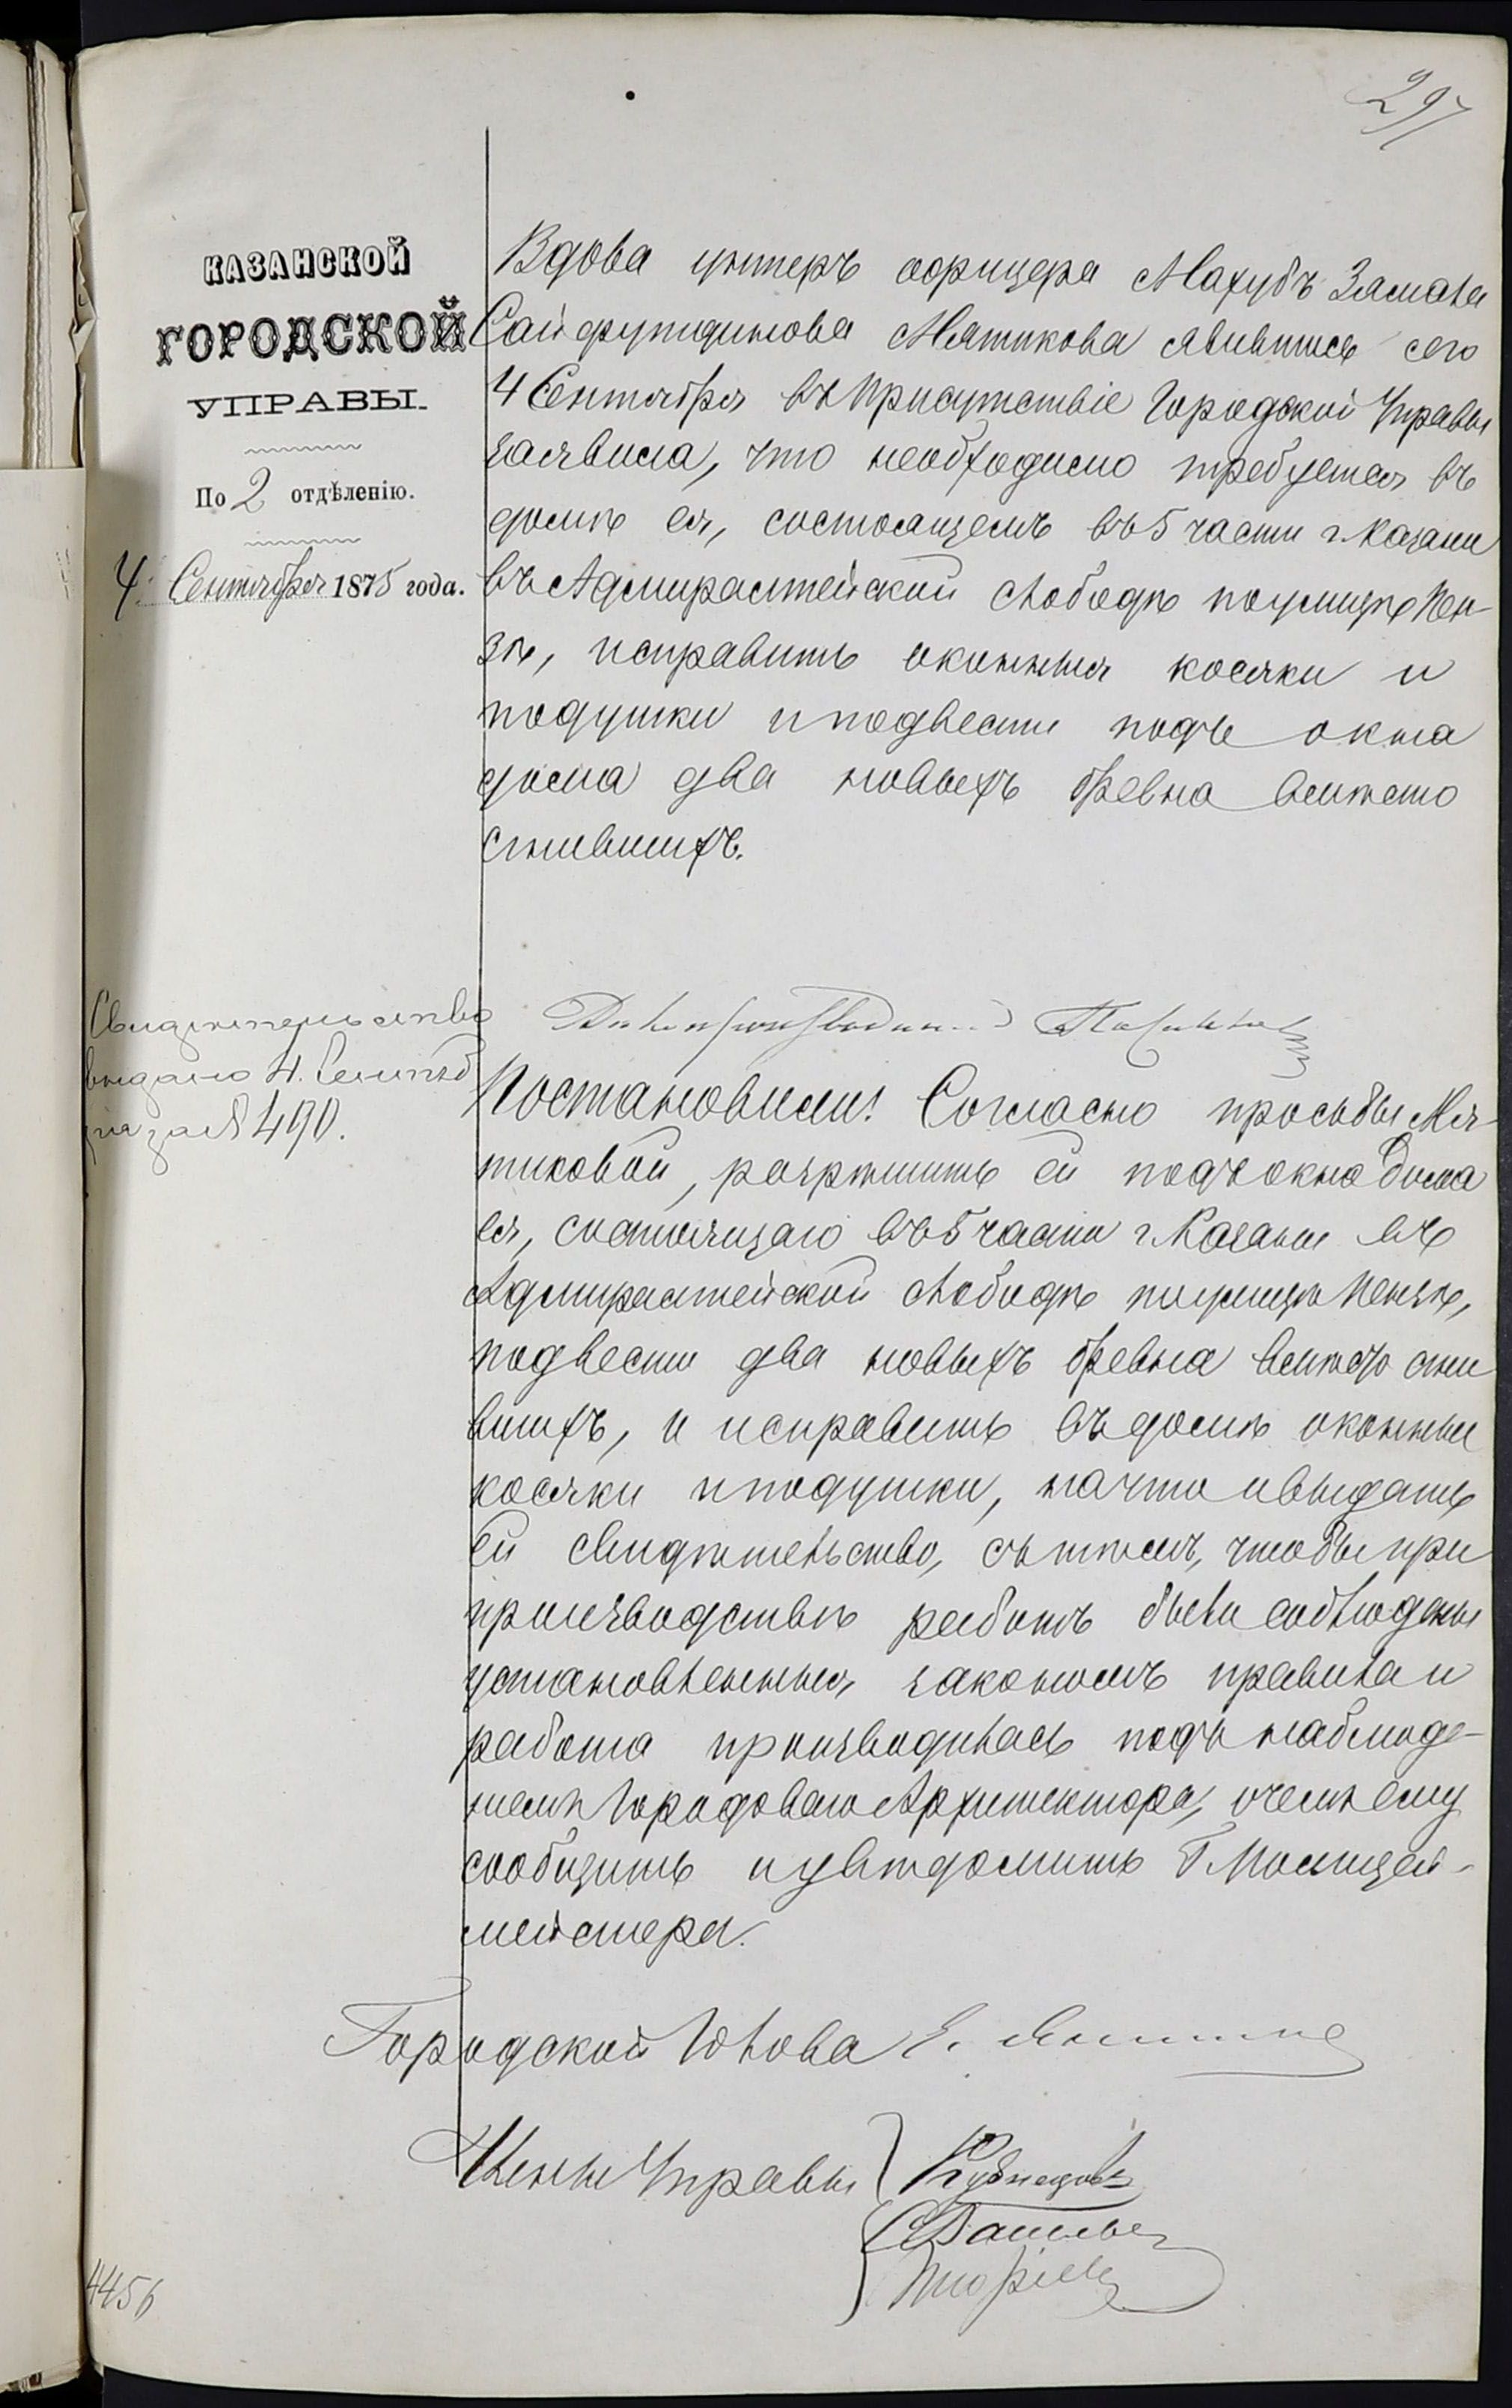 297
КАЗАНСКОЙ
ГОРОДСКОЙ
УПРАВЫ.
По 2 отдѣленію.
4 Сентября 1875 года.
Вдова унтеръ офицера Махубъ Замана
Сайфутдинова Мятикова явившись сего
4 Сентября въ присутствіе Городской Управы
заявила, что необходимо требуется въ
домѣ ея, состоящемъ въ 5 части г. Казани
въ Адмиралтейской слободѣ по улицѣ Пен-
зѣ, исправить оконныя косяки и
подушки и подвести подъ окна
дома два новыхъ бревна вмѣсто
сгнившихъ.
Свидѣтельство
выдано 4. Сентяб
ря за № 490.
Постановили: Согласно просьбы Мя-
тиковой, разрѣшить ей подъ окна дома
ея, состоящаго въ 5 части г. Казани въ
Адмиралтейской слободѣ по улицѣ Пензѣ,
подвести два новыхъ бревна вмѣсто сгни
вшихъ, и исправить въ домѣ оконныя
косяки и подушки, на что и выдать
ей свидѣтельство, съ тѣмъ, чтобы при
производствѣ работъ были соблюдены
установленныя закономъ правила и
работа производилась подъ наблюде-
ніемъ Городоваго Архитектора, о чемъ ему
сообщить и увѣдомить Г. Полицей-
мейстера.
Городской Голова Е.
Члены Управы
Кузнецовъ
4456